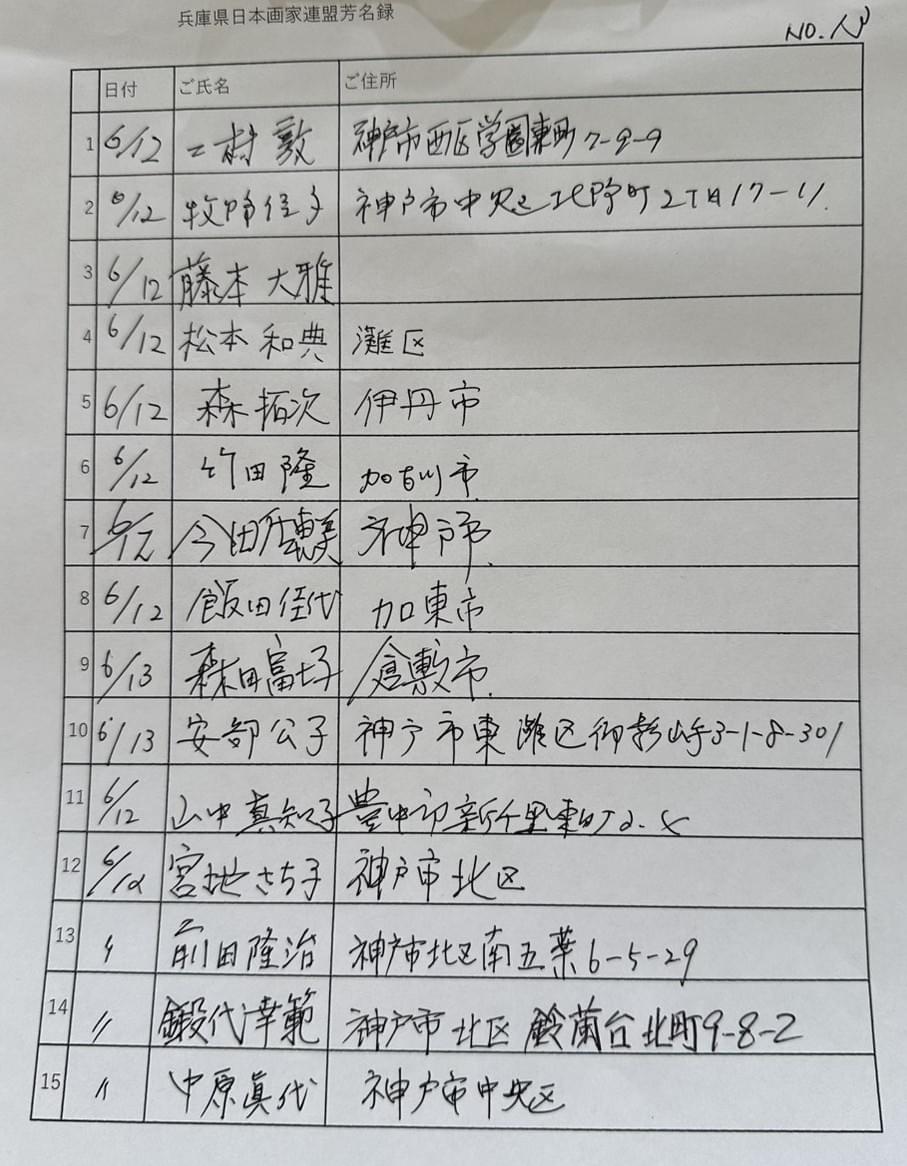 兵庫県日本画家連盟芳名録
NO.
日付 ご氏名 ご住所
1 6/12 二村 敦 神戸市西区学園東町7-9-9
2 6/12 牧野佳子 神戸市中央区北野町2丁目17-11.
3 6/12 藤本 大雅
4 6/12 松本 和典 灘区
5 6/12 森 拓次 伊丹市
6 6/12 竹田 隆 加古川市.
7 6/12 今田 恵美 神戸市.
8 6/12 飯田佳代 加東市
9 6/13 森田富士子 倉敷市.
10 6/13 安部公子 神戸市東灘区御影山手3-1-8-301
11 6/12 山中真知子 豊中市新千里東町2.
12 6/12 宮地さち子 神戸市北区
13 〃 前田隆治 神戸市北区南五葉6-5-29
14 〃 鍛代幸範 神戸市北区 鈴蘭台北町9-8-2
15 〃 中原眞代 神戸市中央区